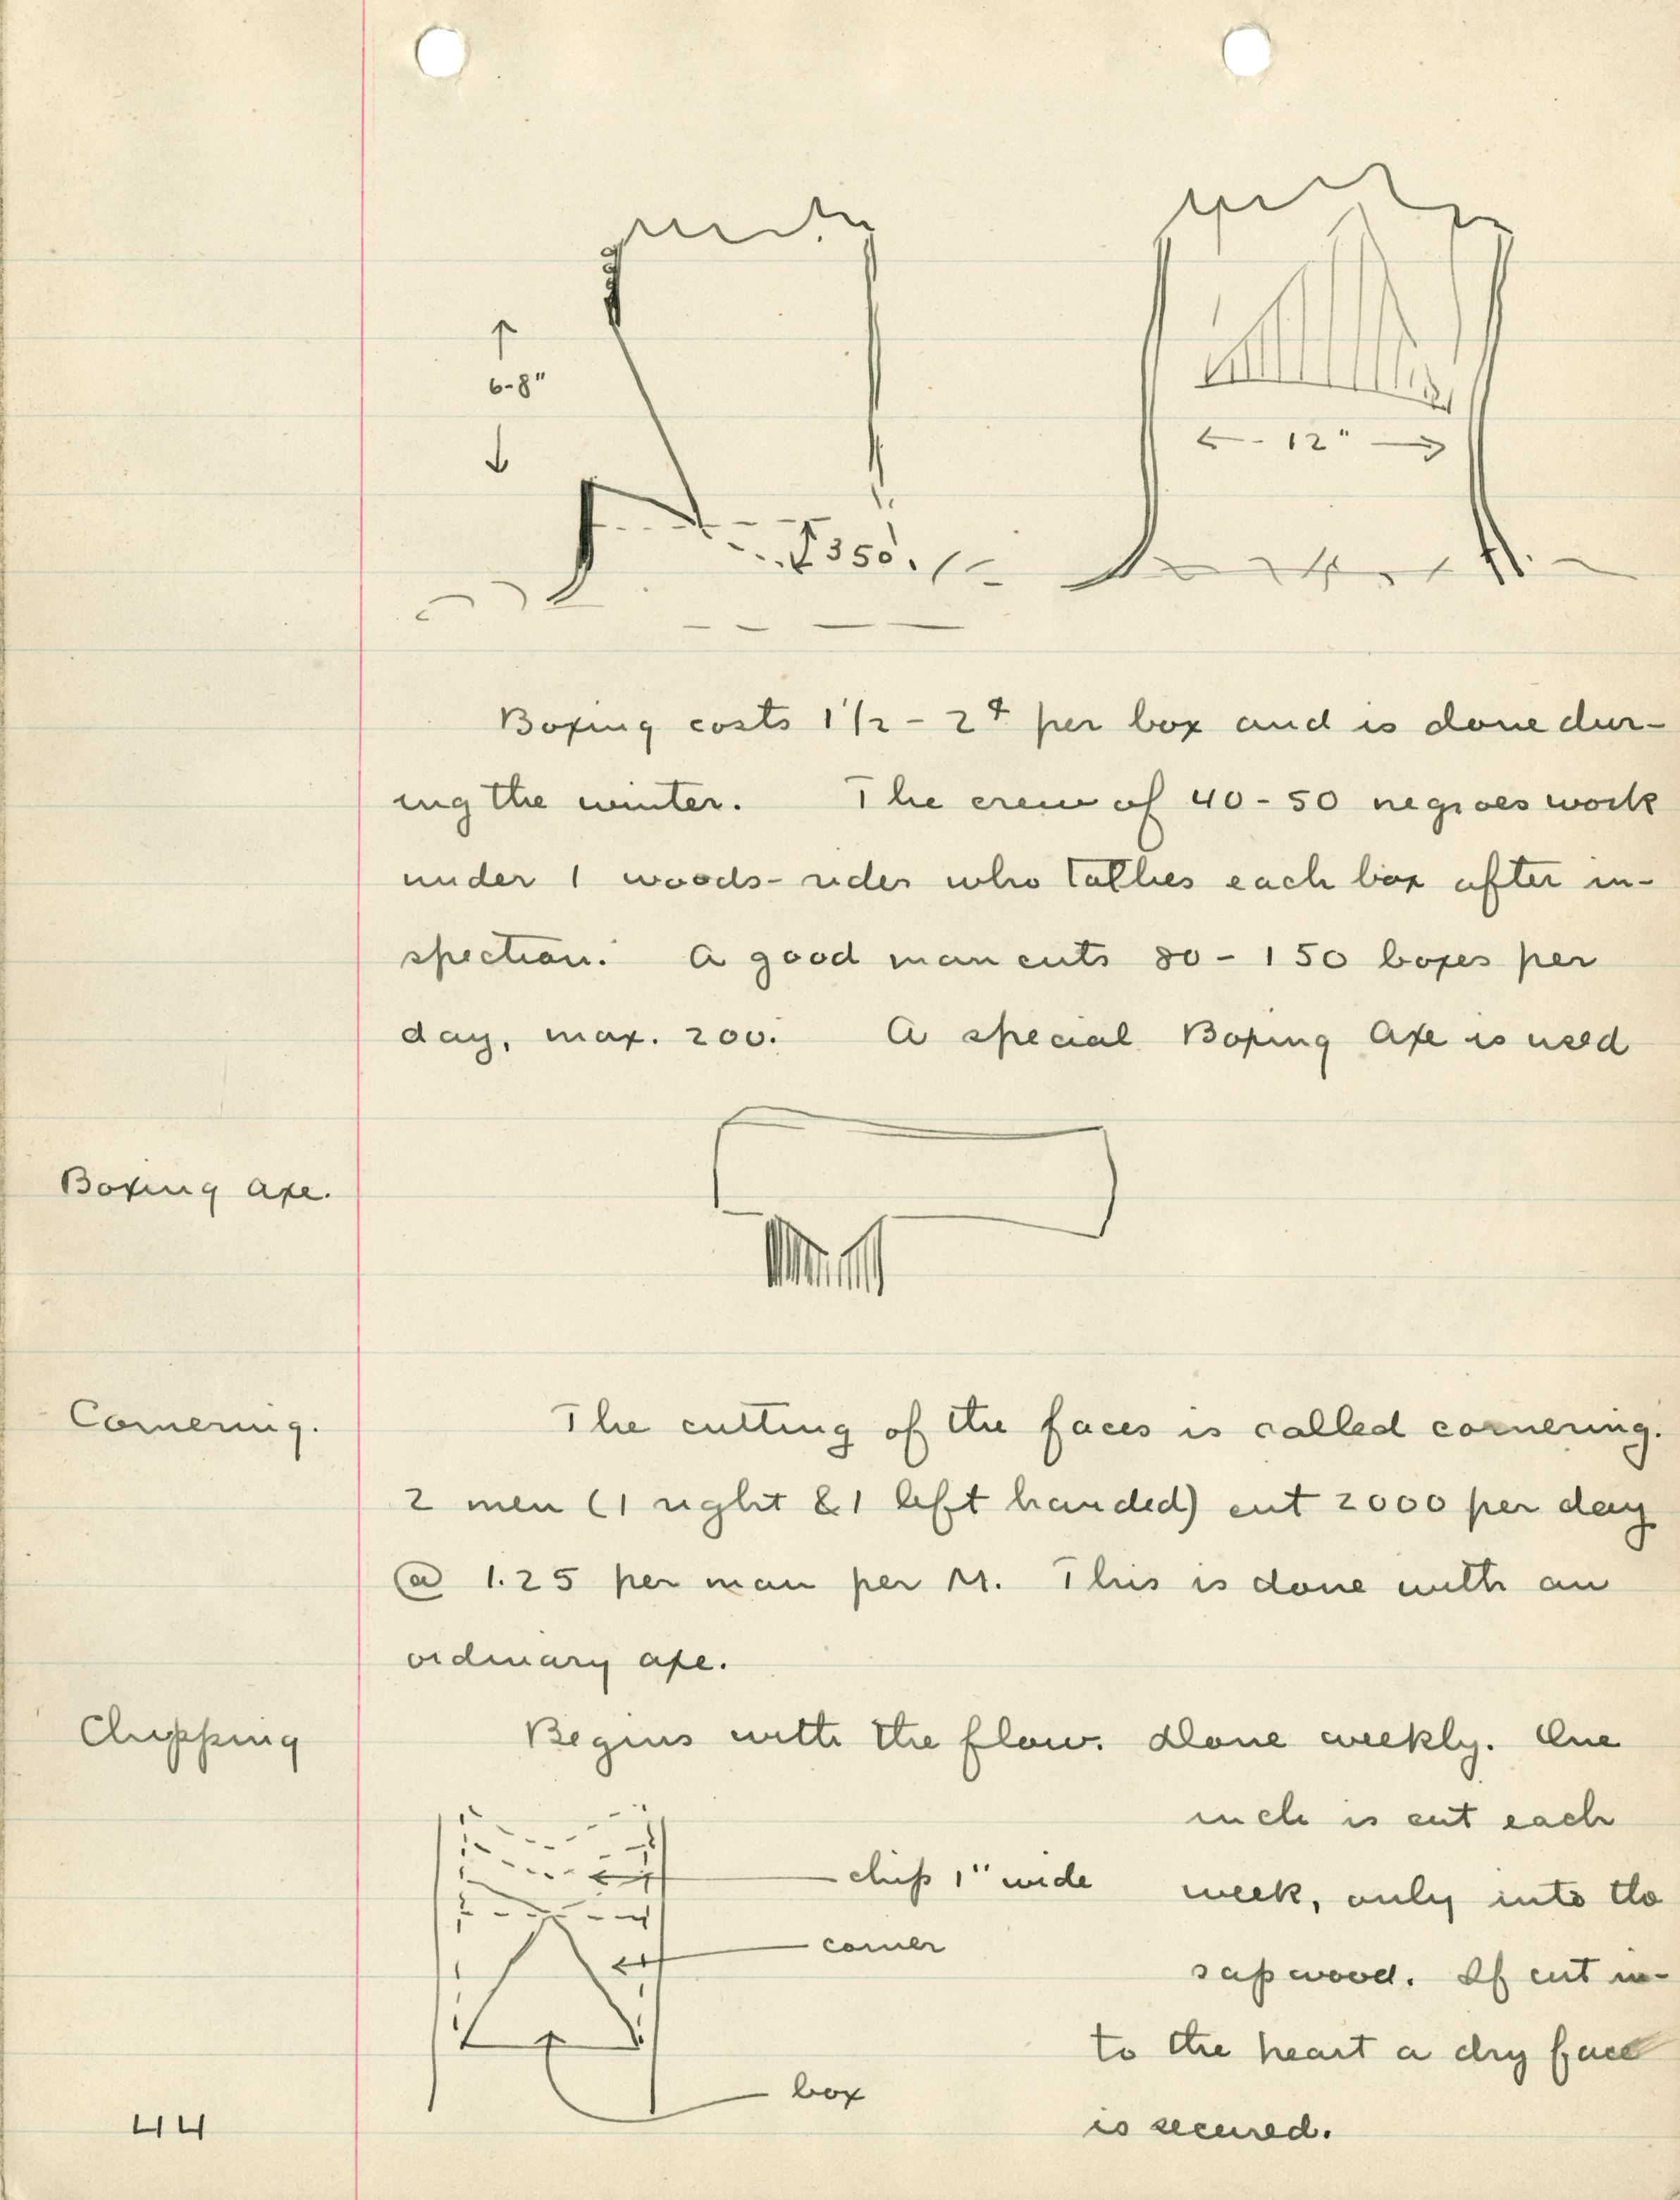 6-8"
← - 12" →
350.
Boxing costs 1 1/2 - 2¢ per box and is done dur-
ing the winter. The crew of 40-50 negroes work
under 1 woods-rider who tallies each box after in-
spection. A good man cuts 80-150 boxes per
day, max. 200. A special Boxing Axe is used
Boxing axe.
Cornering.
The cutting of the faces is called cornering.
2 men (1 right & 1 left handed) cut 2000 per day
@ 1.25 per man per M. This is done with an
ordinary axe.
Chipping
Begins with the flow. Done weekly. One
inch is cut each
chip 1" wide
week, only into the
corner
sapwood. If cut in-
to the heart a dry face
box
is secured.
44